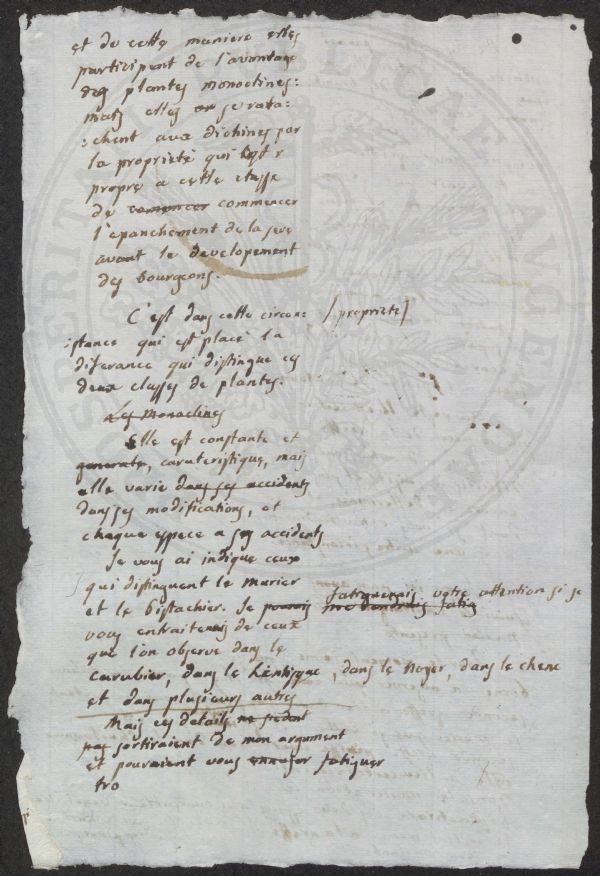 et de cette maniere elles
participent de l'avantage
des plantes monoclines:
mais elles se rata:
:chent aux diclines par
la proprieté qui est
propre a cette classe
de comencer commencer
l'epanchement de la seve
avant le developement
des bourgeons.
C'est dans cette circon: [proprieté]
:stance qui est placé la
diferance qui distingue ces
deux classes de plantes.
Les Monoclines
Elle est constante et
generale, carateristique, mais
elle varie dans ses accidents
dans ses modifications, et
chaque espece a ses accidents
Je vous ai indiqué ceux
qui distinguent le murier
fatiguerais votre attention si je
et le bistachier. Je pourois me rendrais fatig
vous entraitenais de ceux
que l'on observe dans le
carubier, dans le Lentisque, dans le Noyer, dans le chene
et dans plusieurs autres
Mais ces details ne
pas sortiraient de mon argument
et pouraient vous ennuyer fatiguer
tro